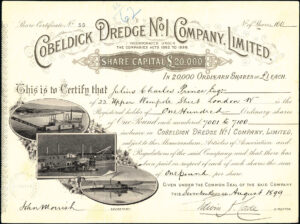 Share Certificate No 55. No of Shares 100
COBELDICK DREDGE No 1 COMPANY, LIMITED.
INCORPORATED UNDER
THE COMPANIES ACTS 1882 TO
SHARE CAPITAL £20,000
IN 20,000 ORDINARY SHARES OF £1 EACH.
This is to Certify that Julius Charles Prince Esqr
of 23 Upper Wimpole Street London W is the
Registered holder of One Hundred Ordinary shares
of One Pound each numbered 7001 to 7100
inclusive in COBELDICK DREDGE No 1 COMPANY, LIMITED,
subject to the Memorandum, Articles of Association and
Regulations of the said Company and that there has
been paid in respect of each of said shares the sum
of One Pound per share
GIVEN UNDER THE COMMON SEAL OF THE SAID COMPANY
this day of August 1899
John Morrish
SECRETARY.
DIRECTOR